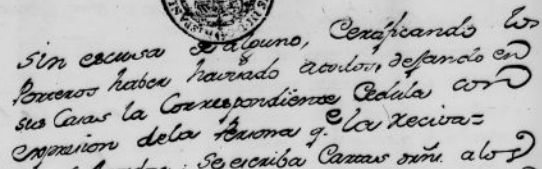 sin escusa de alguno, Cerificando los
Porteros haber havisado a todos, dejando en
sus Casas la Correspondiente Cedula con
expresion dela Persona q.e la reciva=
se escriba Cartas orn. a los